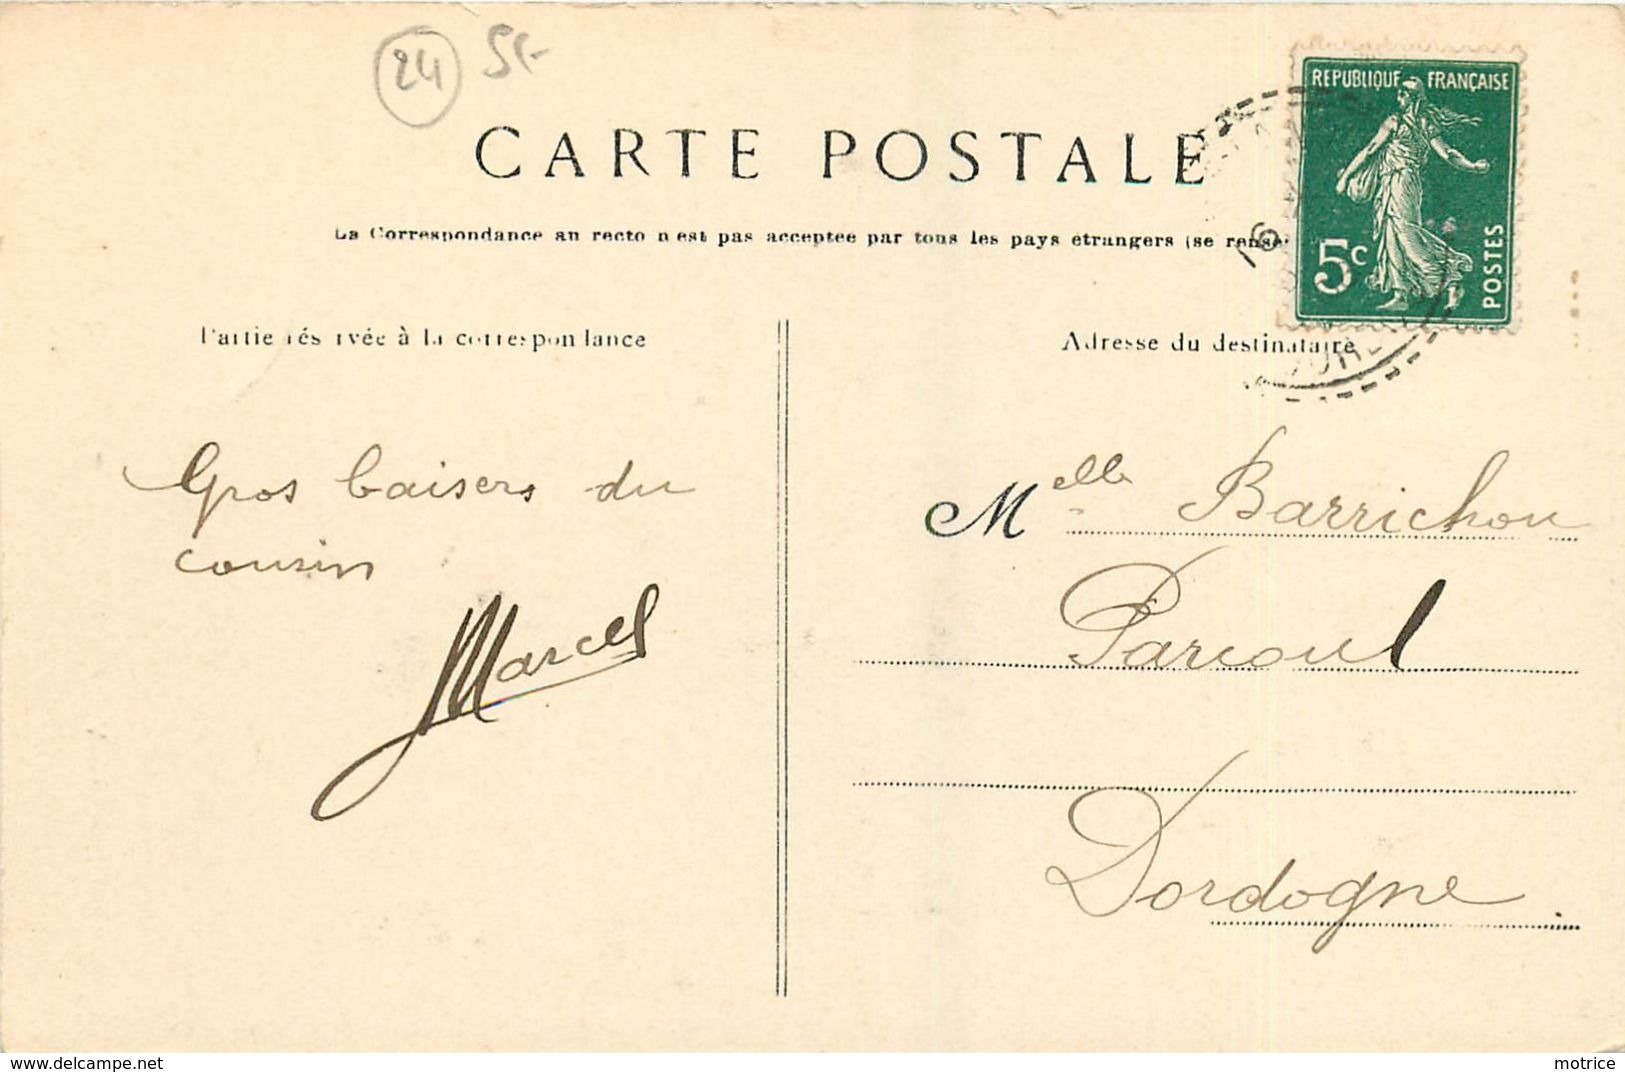 24
REPUBLIQUE FRANÇAISE
CARTE POSTALE
La Correspondance au recto n'est pas acceptée par tous les pays étrangers (se rense
5c
POSTES
Partie réservée à la correspondance
Adresse du destinataire
Gros baisers du
cousin
Marcel
Melle Barrichon
Parcoul
Dordogne
delcampe.net
motrice